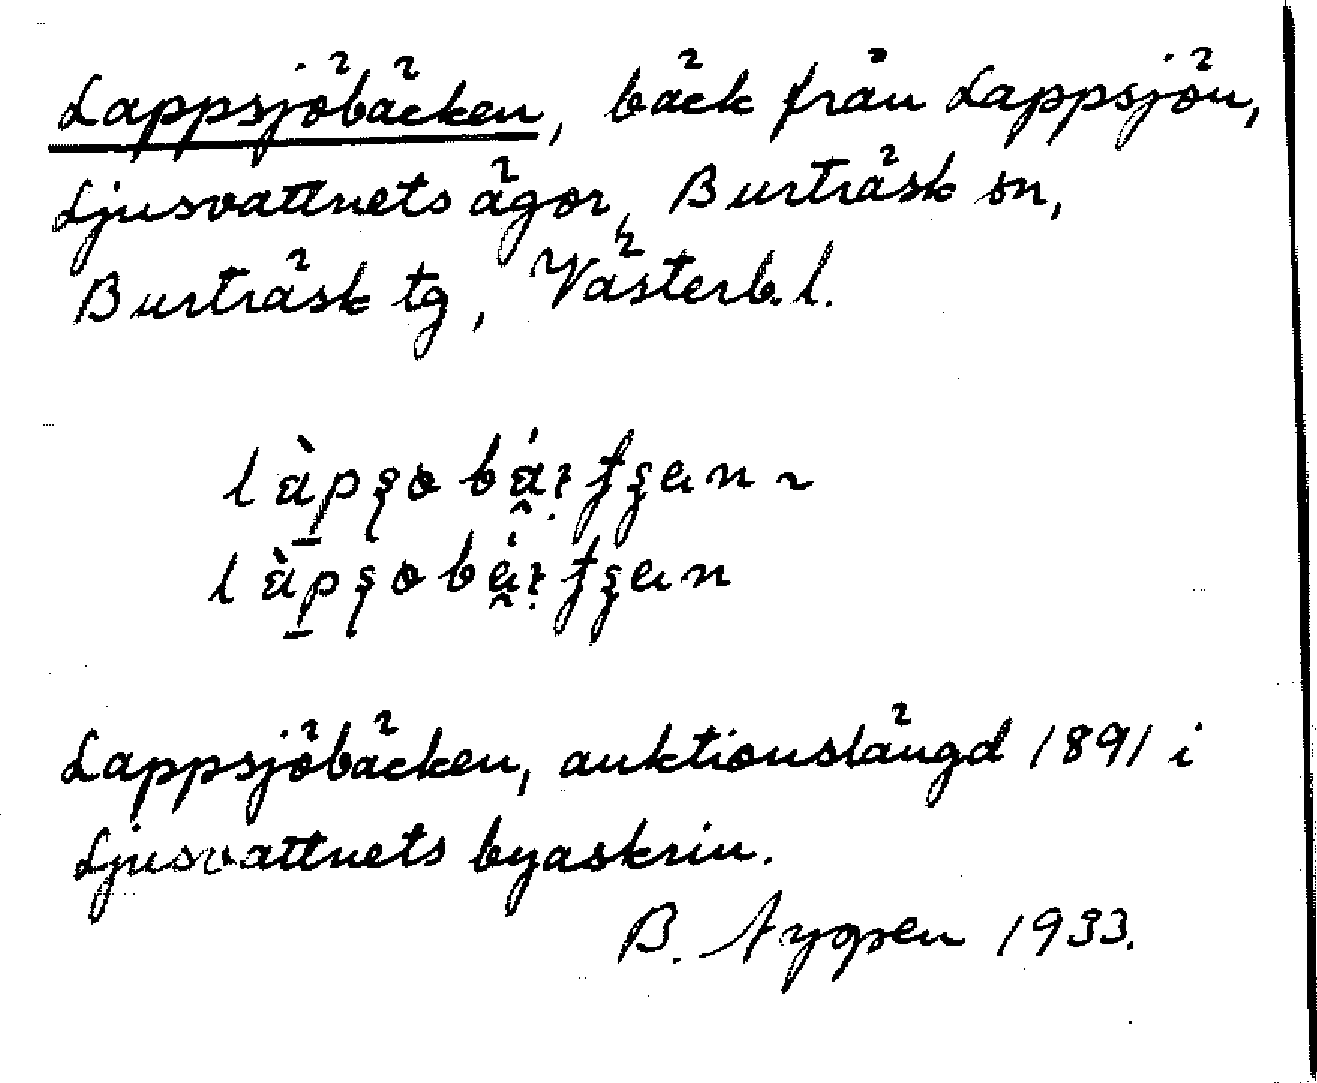 Lappsjöbäcken, bäck från Lappsjön,
Ljusvattnets ägor, Burträsk sn,
Burträsk tg, Västerb. l.
Lappsjöbäcken, auktionslängd 1891 i
Ljusvattnets byaskrin.
B. Nygren 1933.